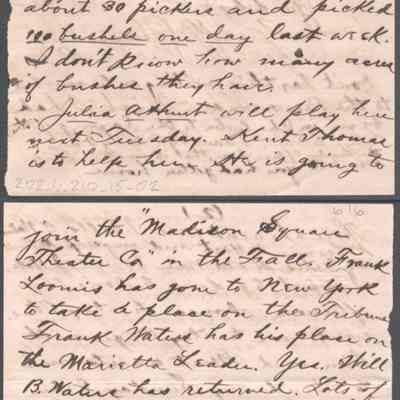 about 30 pickers and picked
100 bushels one day last week.
I don't know how many acres
of bushes they hav.
Julia Athurt will play here
next Tuesday. Kent Thomas
is to help her. He is going to
2026.210.15-02
616
join the "Madison Square
Theatre Co" in the Fall. Frank
Loomis has gone to New York
to take a place on the Tribune
Frank Waters has his place on
the Marietta Leader. Yes, Will
B. Waters has returned. Lots of